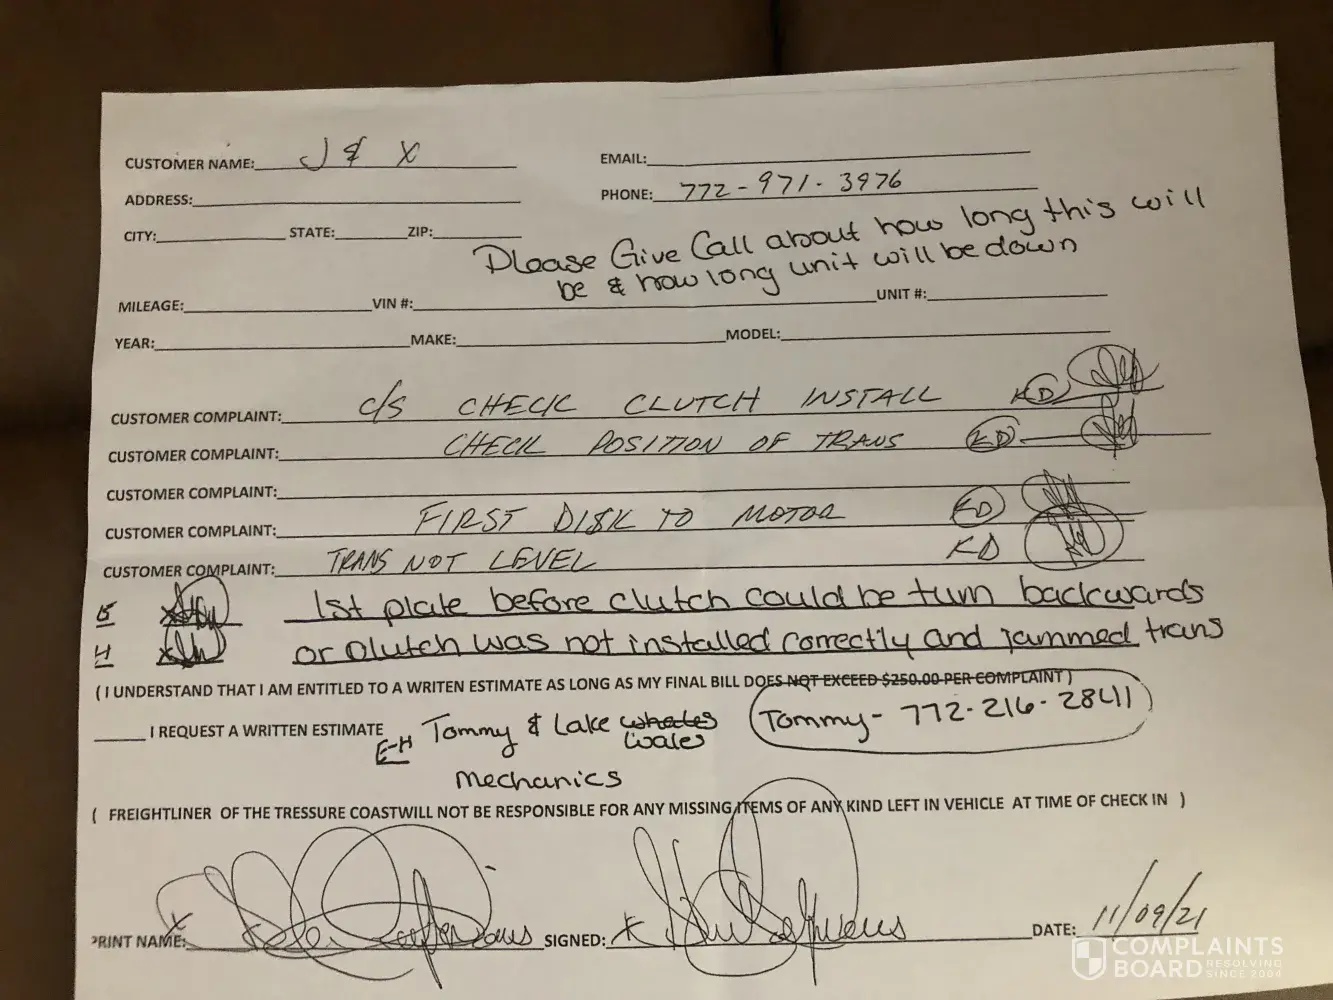 CUSTOMER NAME: J & X
EMAIL:
ADDRESS:
PHONE: 772-971-3976
CITY: STATE: ZIP:
Please Give Call about how long this will
be & how long unit will be down
MILEAGE: VIN #: UNIT #:
YEAR: MAKE: MODEL:
CUSTOMER COMPLAINT: C/S CHECK CLUTCH INSTALL KD
CUSTOMER COMPLAINT: CHECK POSITION OF TRANS KD
CUSTOMER COMPLAINT:
CUSTOMER COMPLAINT: FIRST DISK TO MOTOR KD
CUSTOMER COMPLAINT: TRANS NOT LEVEL KD
1st plate before clutch could be turn backwards
H or clutch was not installed correctly and jammed trans
( I UNDERSTAND THAT I AM ENTITLED TO A WRITEN ESTIMATE AS LONG AS MY FINAL BILL DOES NOT EXCEED $250.00 PER COMPLAINT )
I REQUEST A WRITTEN ESTIMATE
E-H Tommy & Lake whales
wales
mechanics
Tommy- 772-216-2841
( FREIGHTLINER OF THE TRESSURE COASTWILL NOT BE RESPONSIBLE FOR ANY MISSING ITEMS OF ANY KIND LEFT IN VEHICLE AT TIME OF CHECK IN )
PRINT NAME: X SIGNED: X DATE: 11/09/21
COMPLAINTS
BOARD RESOLVING
SINCE 2004